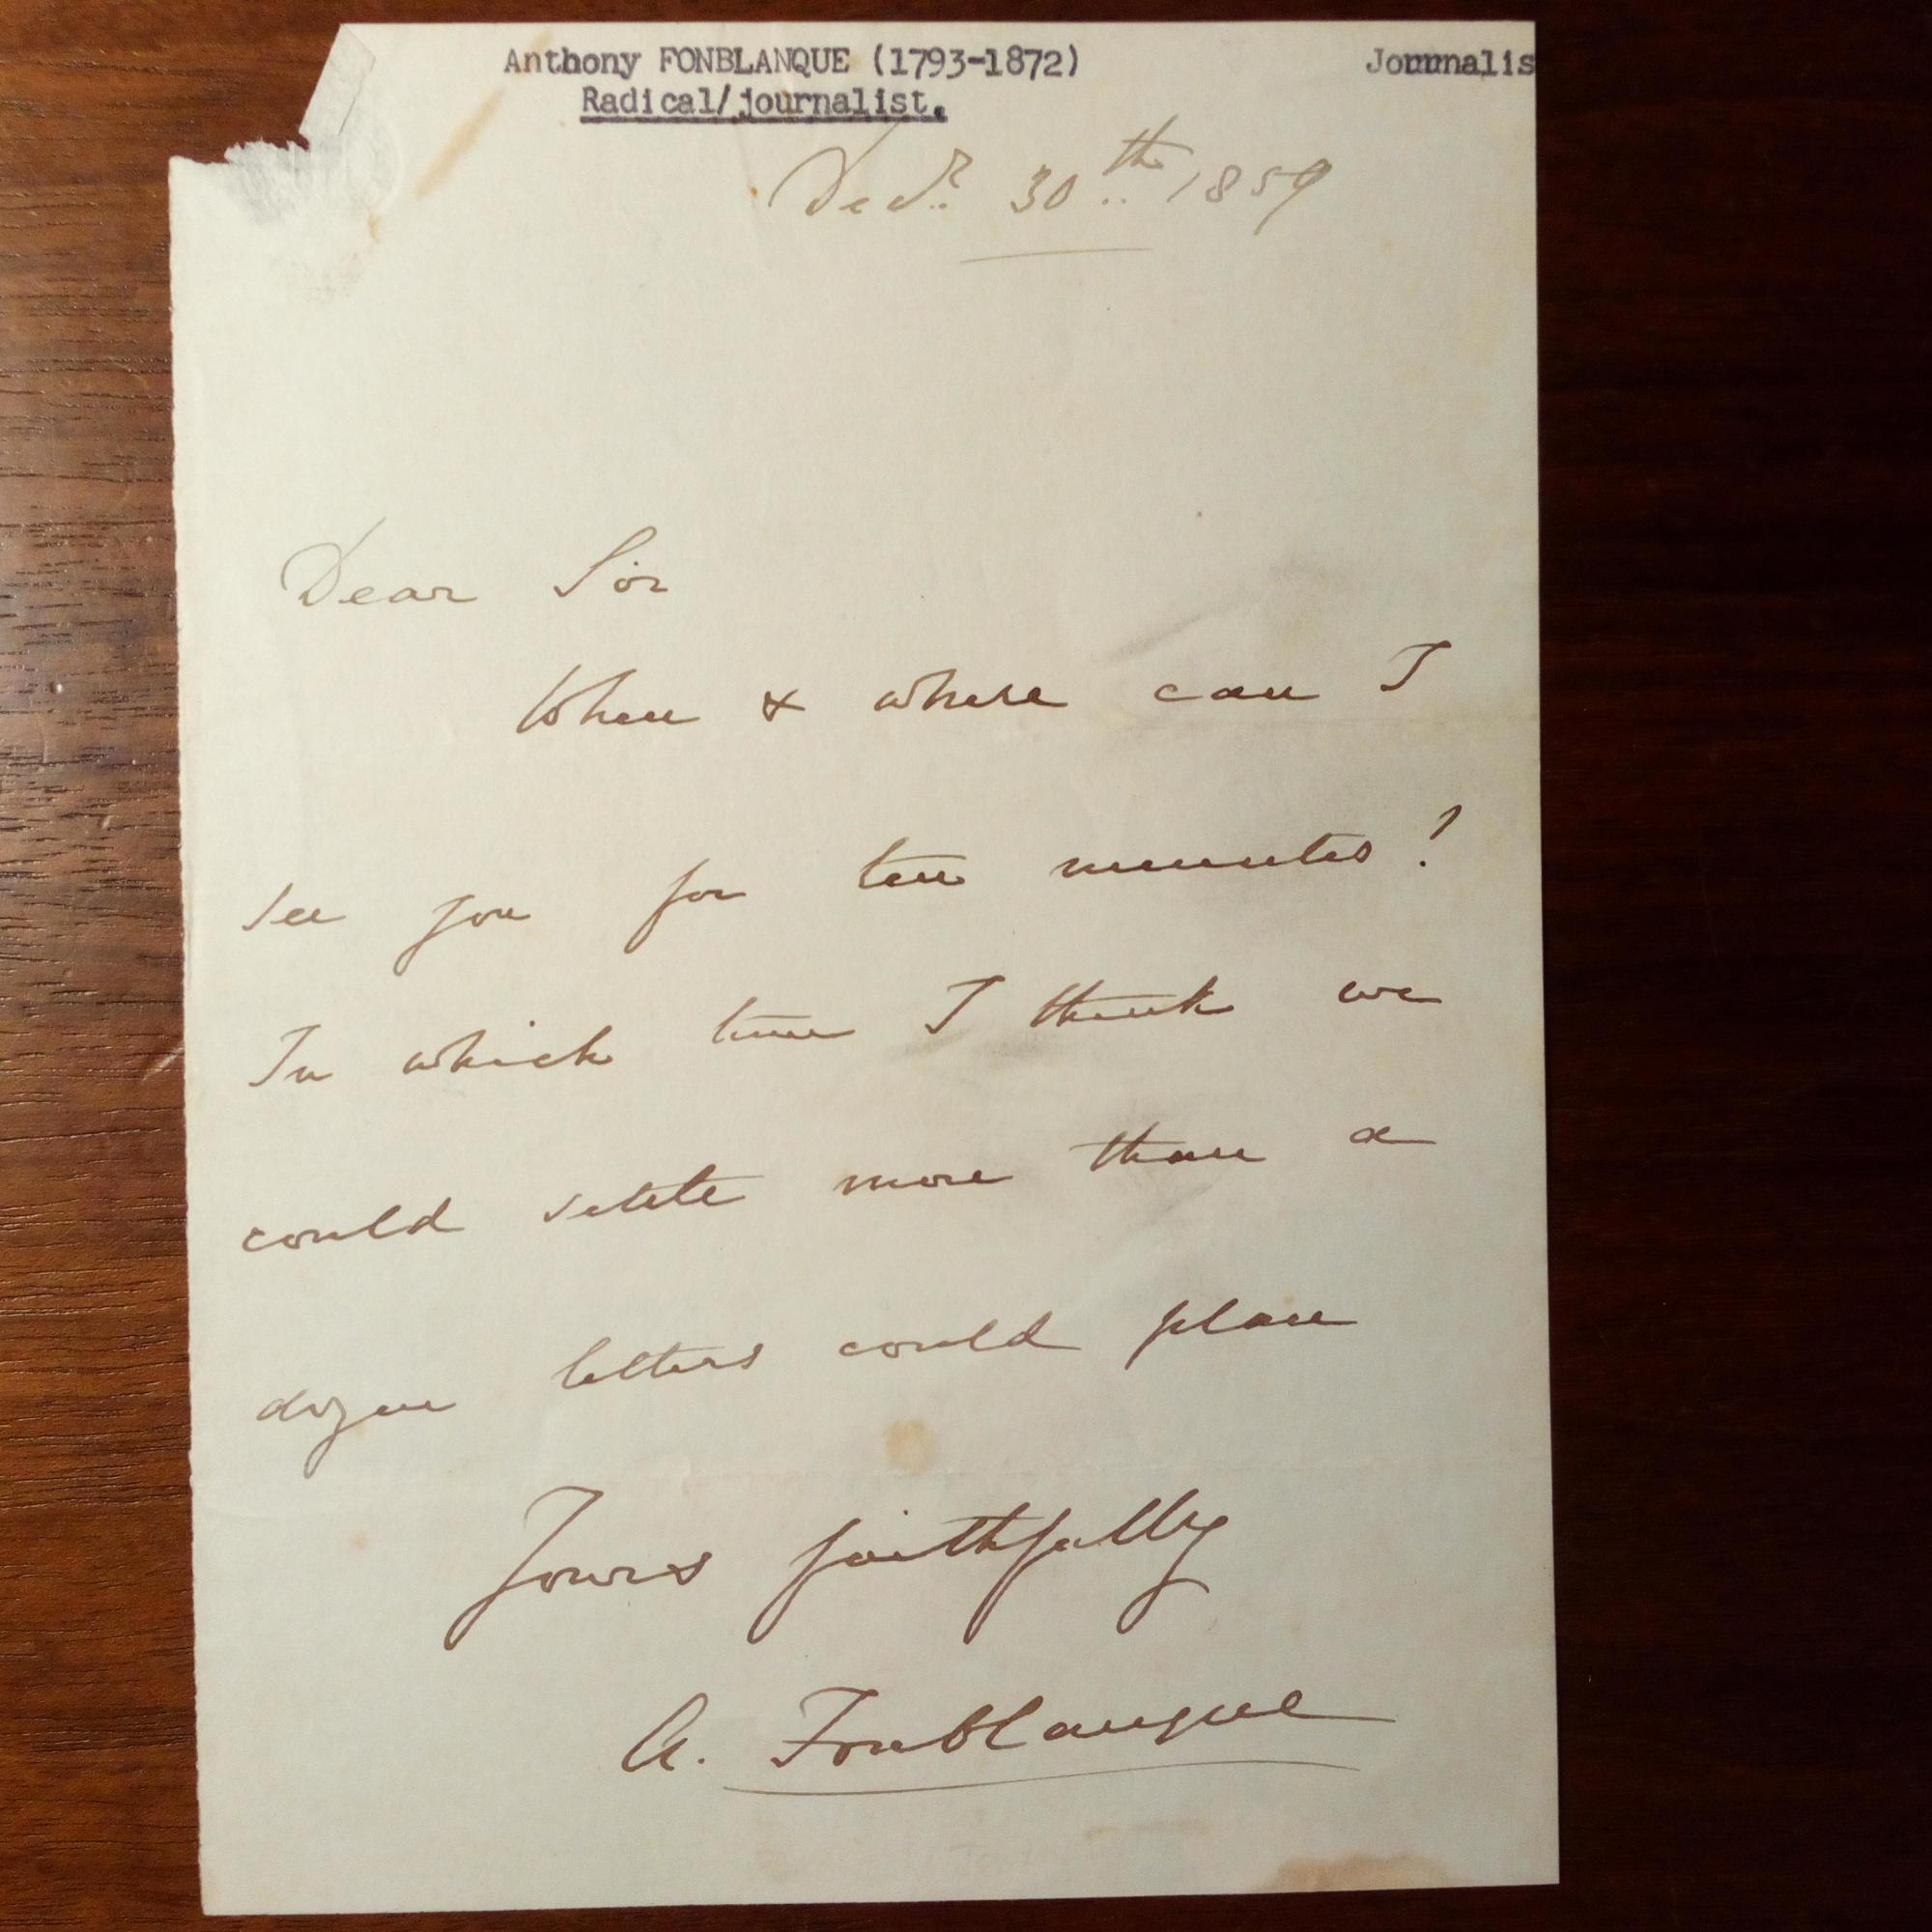 Anthony FONBLANQUE (1793-1872) Jounnalis
Radical/journalist.
Decr 30th 1859
Dear Sir
When & where can I
see you for ten minutes?
In which time I think we
could settle more than a
dozen letters could place
Yours faithfully
A. Fonblanque